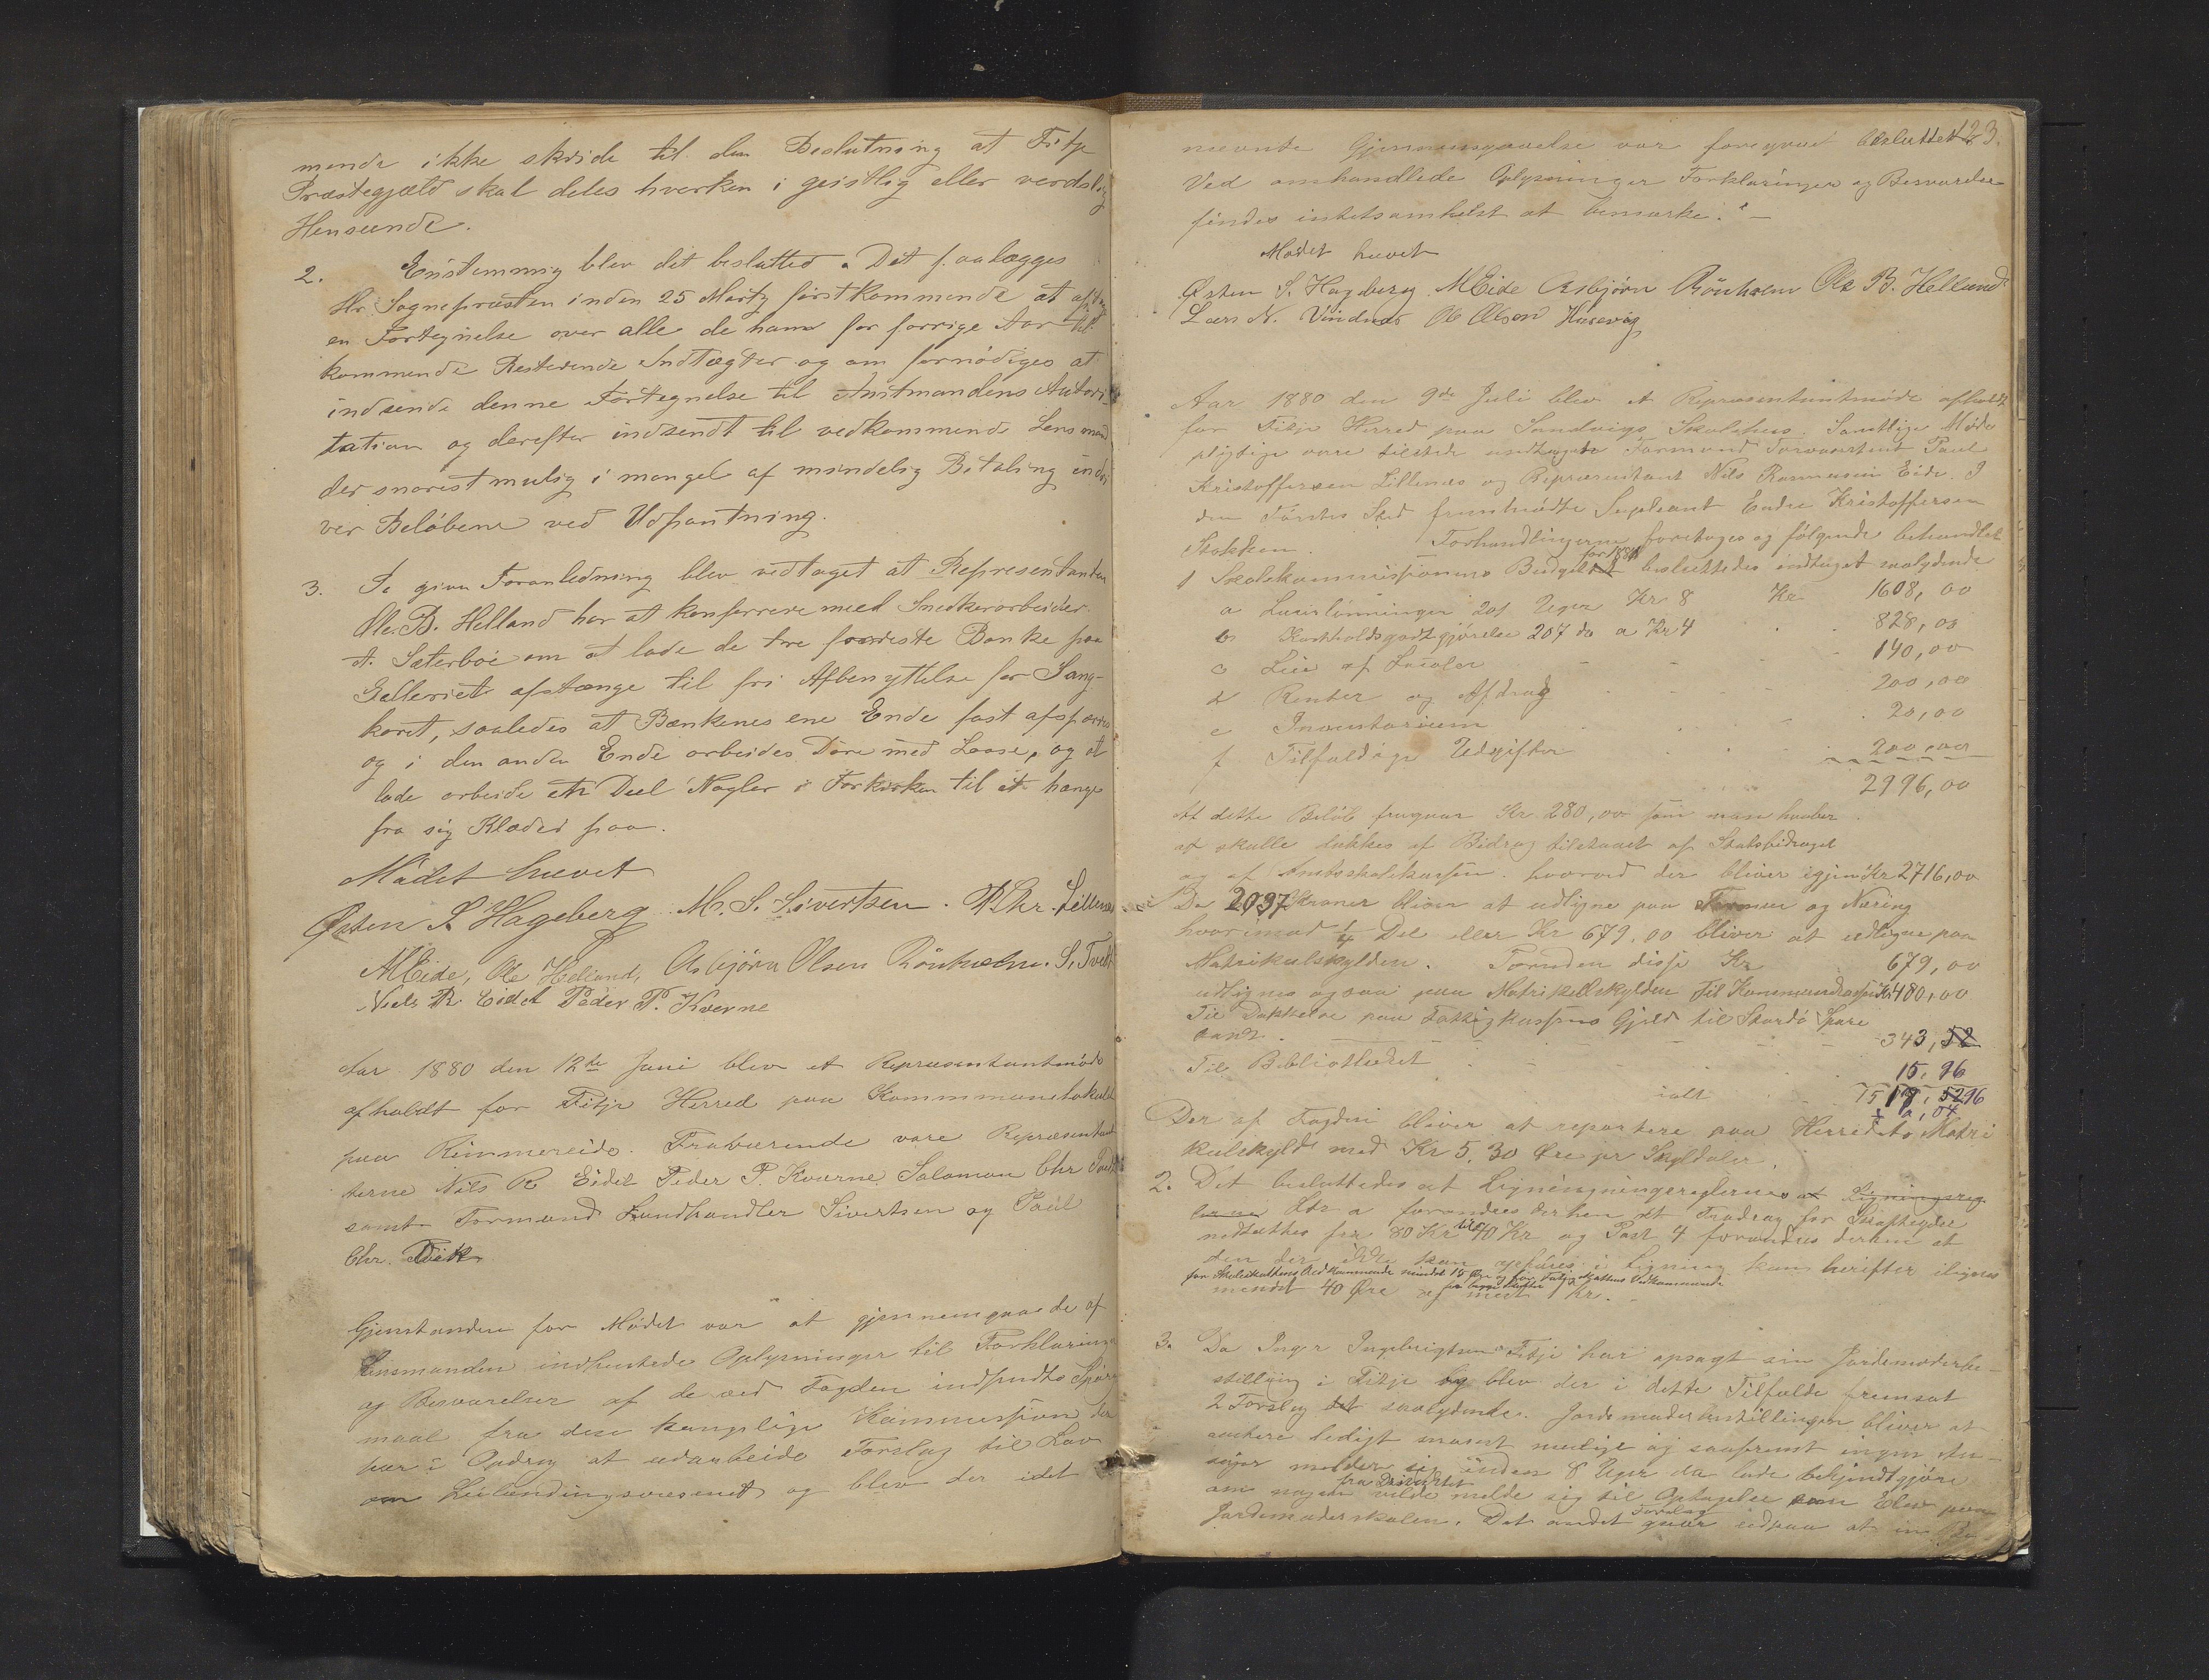 mende ikke skride til den Beslutning at Fitje
Præstegjæld skal deles hverken i geistlig eller verdslig
Henseende.
2. Enstemmig blev det beslutted. Det paalægges
Hr Sognepræsten inden 25 Marty førstkommende at
en Fortegnelse over alle de ham for forrige Aar til
kommende Resterende Indtægter og om fornødiges at
indsende denne Fortegnelse til Amtmandens Autori-
tation og derefter indsendt til vedkommende Lensmand
der snarest mulig i mangel af mindelig Betaling inddri
ver Beløbene ved Udpantning.
3. I given Foranledning blev vedtaget at Representanten
Ole. B. Helland har at konferrere med Snedkerarbeider
A. Sæterbøe om at lade de tre forreste Bænke paa
Galleriet afstænge til fri Afbenyttelse for Sang-
koret, saaledes at Bænkenes ene Ende fast afsperres
og i den anden Ende arbeides Døre med Laase, og at
lade arbeide en Deel Nagler i Forkirken til at hænge
fra sig Klæder paa.
Mødet hævet
Østen S Hageberg. M. S. Sivertsen. P. Chr. Lillenæs
M Eide, Ole Helland, Asbjørn Olsen Rönholm. S. Tvedt
Niels R. Eidet Peder P. Kværne
Aar 1880 den 12te Juni blev et Repræsentantmöde
afholdt for Fitje Herred paa Kommunelokalet
paa Rimmereide. Fraværende vare Repræsentan
terne Nils R Eidet Peder P. Kværne Salamon Chr Tvedt
samt Formænd Landhandler Sivertsen og Paul
Chr.
Gjenstanden for Mødet var at gjennemgaa de af
Lensmanden indhentede Oplysninger til Forklaringer
og Besvarelser af de ved Fogden indsendte Spørgs
maal fra den kongelige Kommission der
har i Opdrag at udarbeide Forslag til Lov
om Leilændingsvæsenet og blev der idet
123.
nævnte Gjennemgaaelse var foregaaet besluttet
Ved omhandlede Oplysninger Forklaringer og Besvarelser
findes intetsomhelst at bemærke." —
Mødet hævet
Østen S. Hageberg M Eide Asbjörn Rönholm Ole B. Helland
Lars N. Vindnæs Ole Olson Kaasevig
Aar 1880 den 9de Juli blev et Repræsentantmøde afholdt
for Fitje Herred paa Sandvigs Skolehus. Samtlige Møde
pligtige vare tilstede undtagen Formænd Forvarslent Paul
Kristoffersen Lillenæs og Repræsentant Nils Rasmussen Eide. I
den Førstes Sted fremmødte Supleant Endre Kristoffersen
Stokken. Forhandlingerne foretoges og følgende behandlet
for 1881
1 Skolekommissionens Budget besluttedes indtaget saalydende
a Lærerlønninger 201 Uger Kr 8 Kr. 1608,00
b Kostholdsgodtgjørelse 207 do a Kr 4 828,00
c Leie af Lokaler 140,00
d Renter og Afdrag 200,00
e Inventarium 20,00
f Tilfældige Udgifter 200,00
2996,00
At dette Beløb fragaar Kr. 280,00 som man haaber
at skulle dækkes af Bidrag tilstaaet af Statsbidraget
og af Amtsskolekassen. hvorved der bliver igjen Kr 2716,00
Da 2037 Kroner bliver at udligne paa Formue og Næring
hvorimod 1/4 Del eller Kr 679,00 bliver at udligne paa
Matrikulskylden. Foruden disse Kr 679,00
udlignes ogsaa paa Matrikelskylden Til Kommunekassen Kr 480,00
Til Dækkelse paa Fattigkassens Gjæld til Stordö Spare
bank. 343,52
Til Bibliotheket 15,96
ialt 1518,5296
Der af Fogden bliver at repartere paa Herredets Matri
kulskyld med Kr 5,30 Øre pr Skyldaler.
2. Det besluttedes at Ligningsreglernes at Ligningsreg
lernes Litr a forandres derhen at Fradrag for
nedsættes fra 80 Kr til 40 Kr og Post 4 forandres derhen at
den der ikke kan opføres i Ligning kan herefter ilignes
for Skoleskattens Vedkommende mindst 15 Øre og for Fattigskattens Vedkommende
mindst 40 Øre af mindst 1 Kr. —
3. Da Inger Ingebrigtsen Fitje har opsagt sin Jordemoderbe-
stilling i Fitje og blev der i dette Tilfælde fremsat
2 Forslag det saalydende. Jordemoderbestillingen bliver at
avertere ledigt snarest muligt og saafremt ingen An-
søger melder sig inden 8 Uger da lade bekjendtgjøre
fra Distriktet
om nogen vilde melde sig til Optagelse som Elev paa
Forslag
Jordemoderskolen. Det andet gaar udpaa at